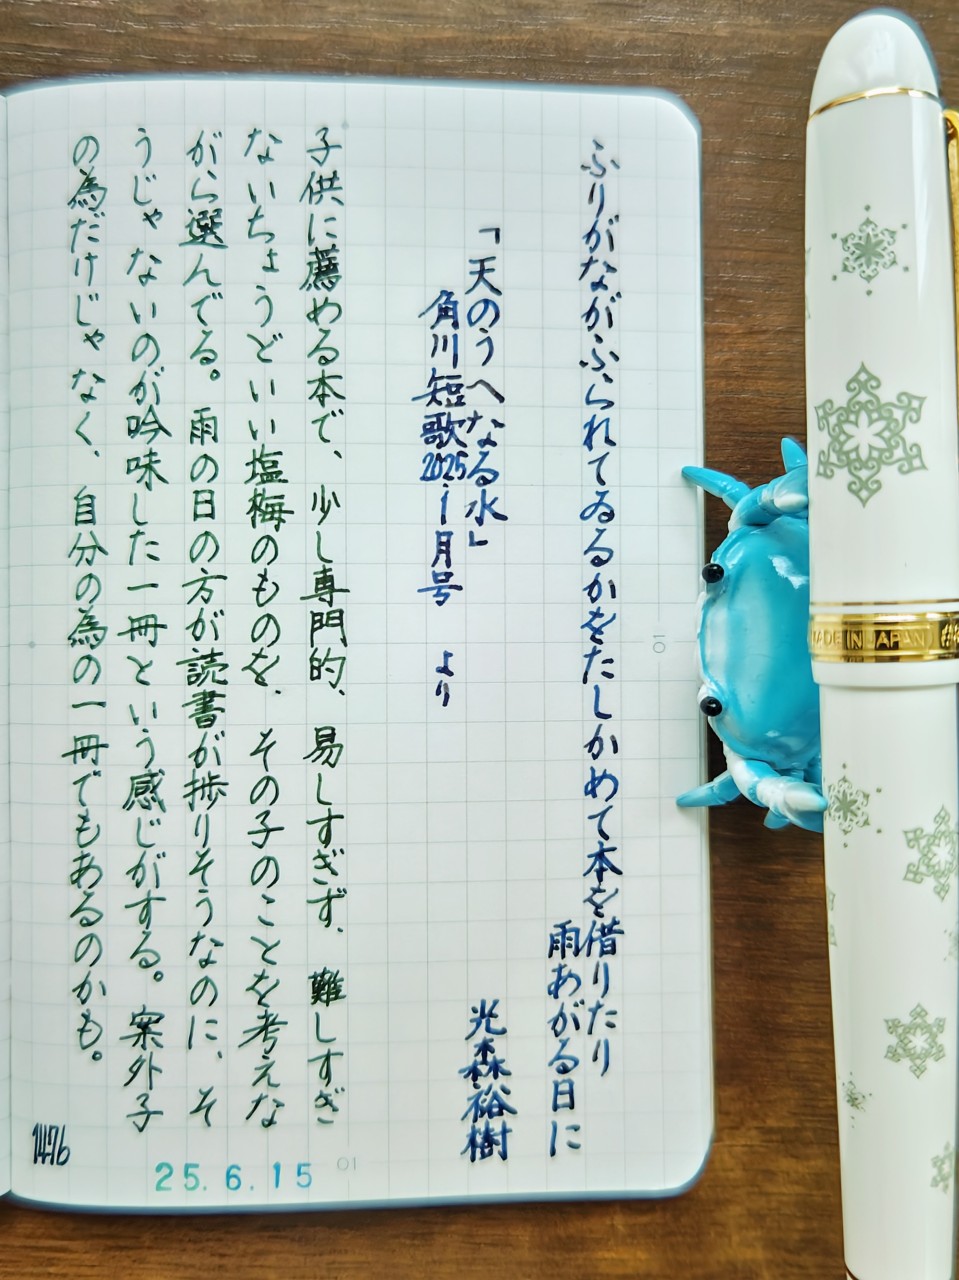 ふりがながふられてゐるかをたしかめて本を借りたり
雨あがる日に
「天のうへなる水」
光森裕樹
角川短歌2025.1月号 より
子供に薦める本で、少し専門的、易しすぎず、難しすぎ
ないちょうどいい塩梅のものを、その子のことを考えな
がら選んでる。雨の日の方が読書が捗りそうなのに、そ
うじゃないのが吟味した一冊という感じがする。案外子
の為だけじゃなく、自分の為の一冊でもあるのかも。
1476
25.6.15
10
10
MADE IN JAPAN